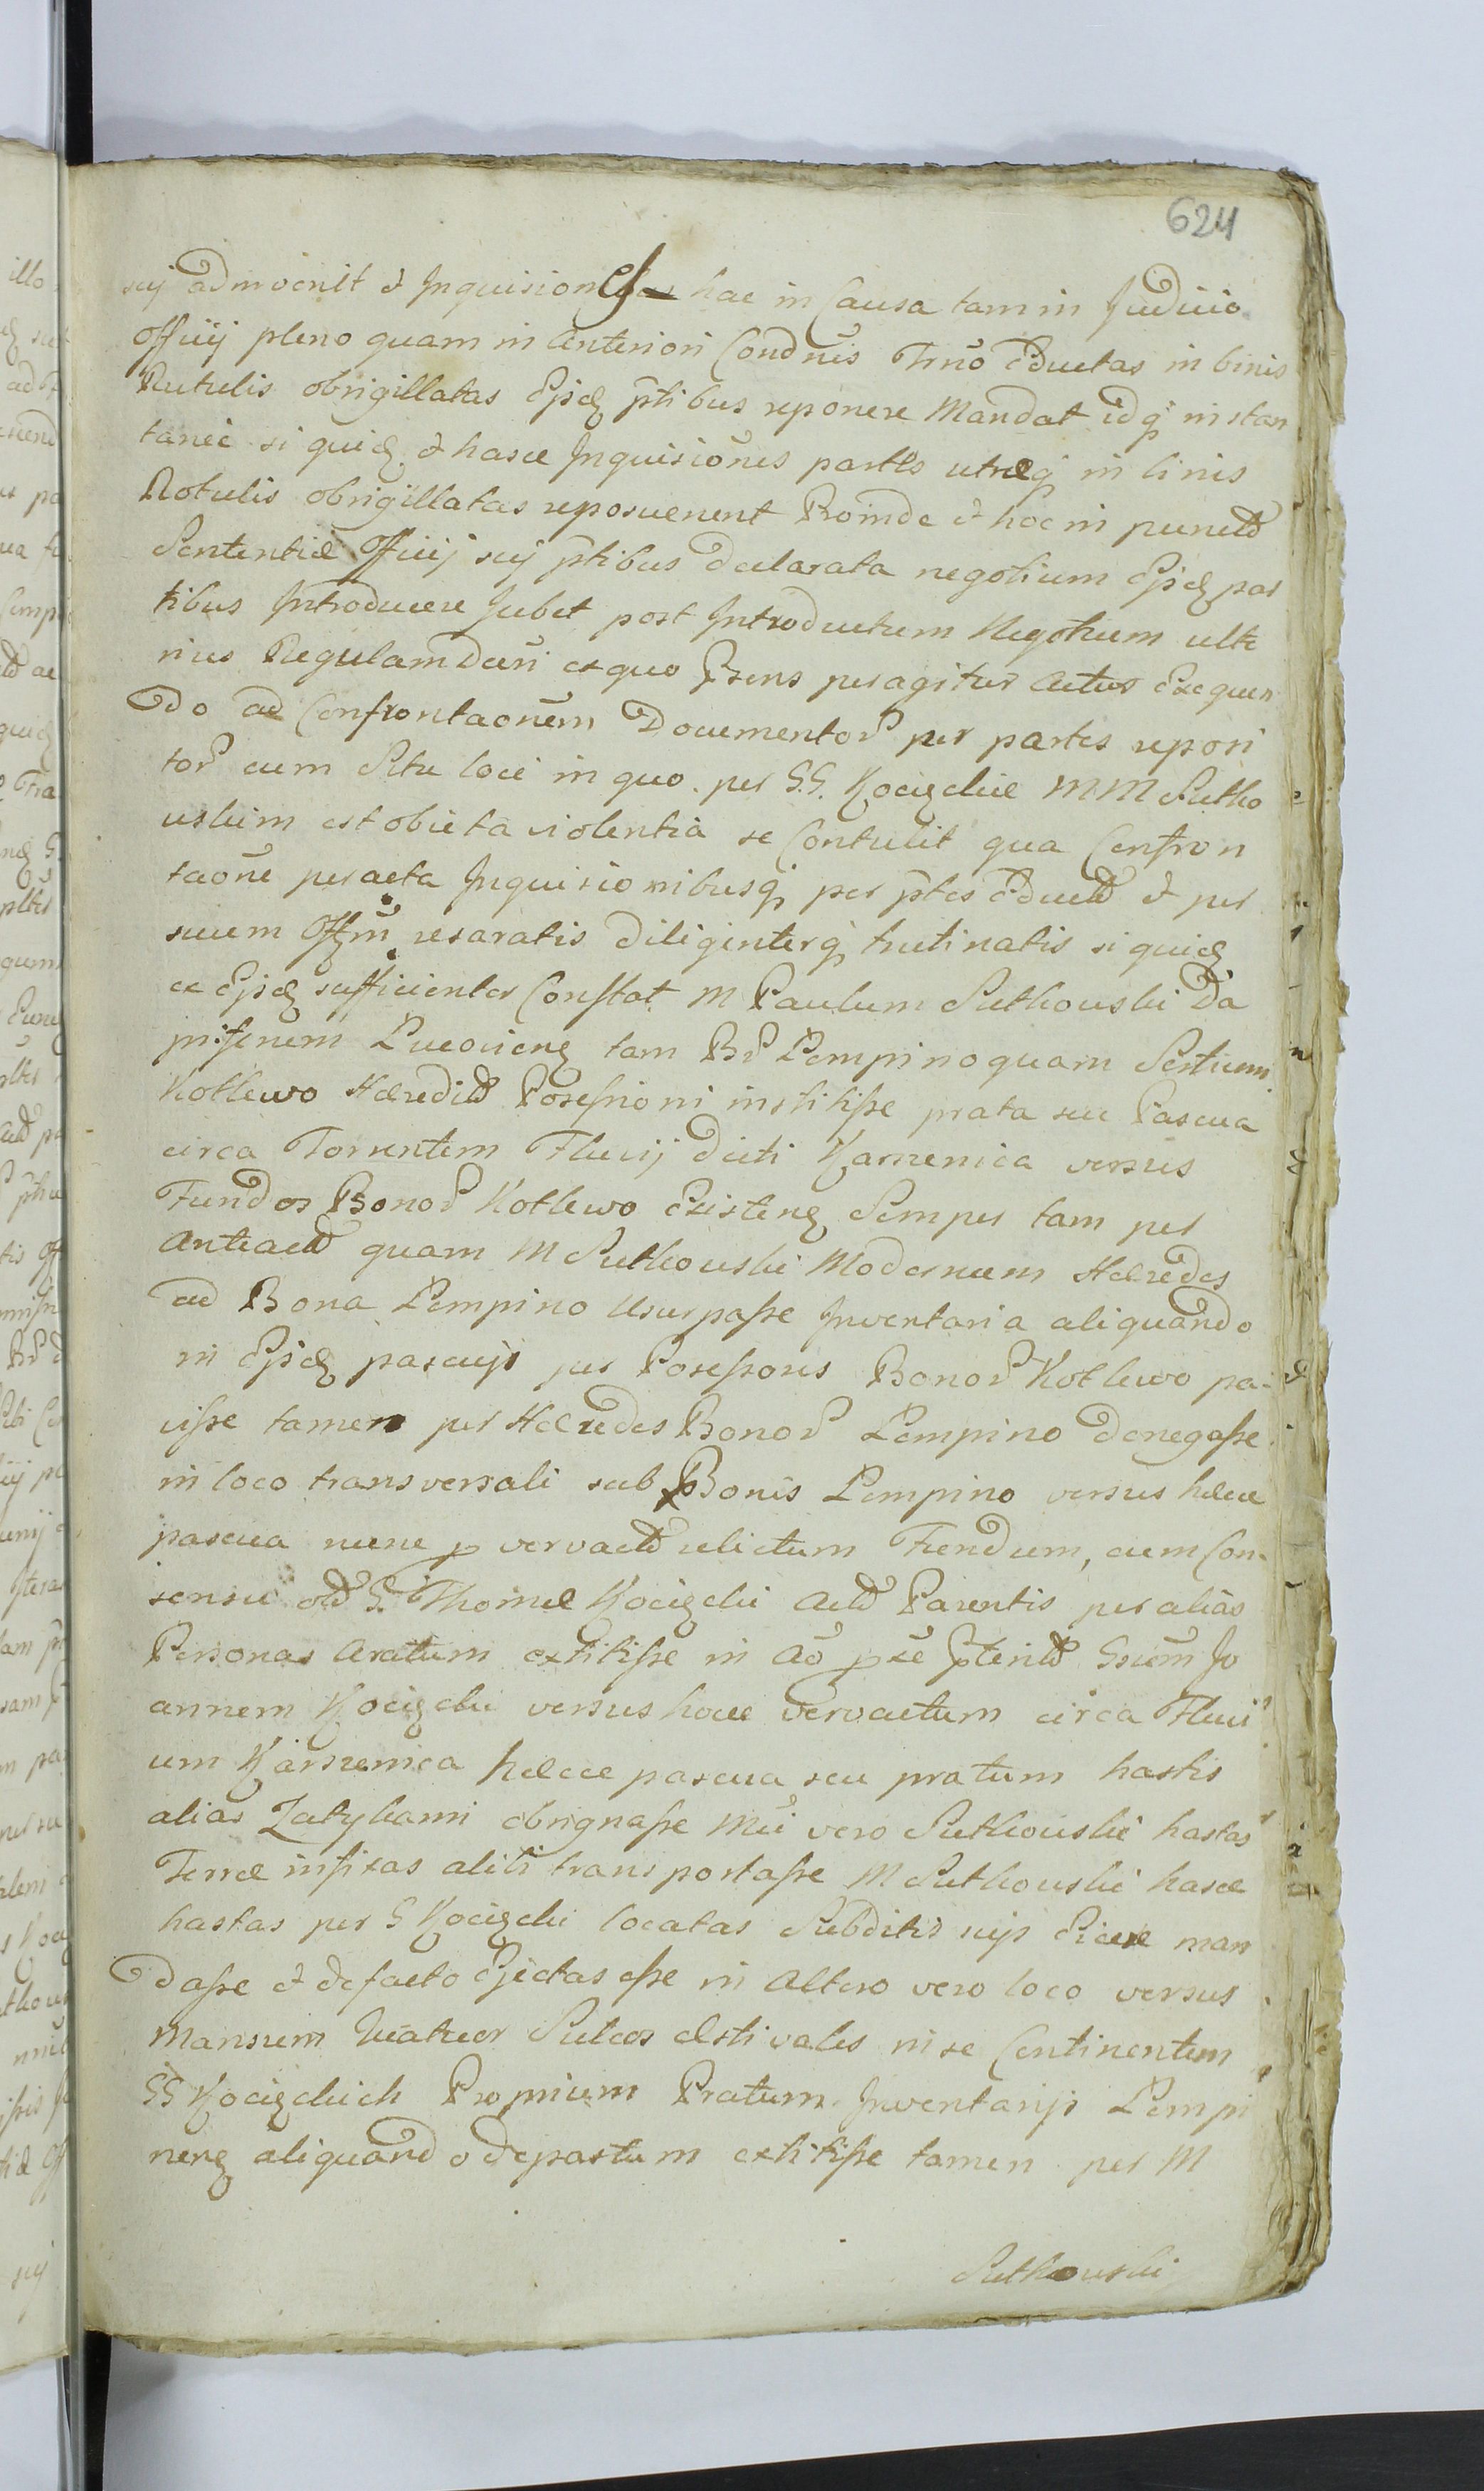 624
sui admovent & Inquisiones hac in Causa tam in Judicio
Officij pleno quam in Anteriori Condnīs Trnō Eductas in binis
Rutulis obsigillatas Ejsdꝫ ptibus reponere Mandat idqꝫ instan
tanee siquidꝫ & hasce Inquisiōnes partes utræqꝫ in binis
Rotulis obsigillatas reposuerunt Proinde & hoc in puncto
Sententiæ Officij sui ptibus declarata negotium Ejsdꝫ par
tibus Introducere Jubet post Introductum Negotium ulte
rius Regulamdari ex quo Prsens peragitur Actus Exequen
do ad Confrontaonem Documentor per partes reposi
tor cum Situ loci in quo per G.G. Kocięckie M M Sutko
wskim est obiecta violentia se Contulit qua Confron
taōne peracta Inquisicionibusqꝫ per ptes Educt & per
suum Offm̄ resaratis diligenterqꝫ trutinatis siquidꝫ
ex Ejsdꝫ sufficienter Constat M Paulum Sutkowski Da
piferum tam Br Lempino quam Sortium
Kotlewo Hæredit Possessioni institisse prata seu Pascua
circa Torrentem Fluvij dicti Kamienica versus
Fundos Bonor Kotlewo Existenꝫ Semper tam per
Anteact quam M Sutkowski Modernum Hæredes
ad Bona Lempino Usurpasse Inventaria aliquando
in Ejsdꝫ pascujs per Possessores Bonor Kotlewo pa-
visse tamen per Hæredes Bonor Lempino denegasse
in loco transversali sub Bonis Lempino versus hæce
pascua nunc p vervact relictum Fundum, cum Con-
sensu old G. Thomæ Kocięcki Act Parentis per alias
Personas Aratum extitisse in Aō pterito Gsum Jo
annem Kocięcki versus hoce vervactum circa Fluvi
um Kamienica hæcce pascua seu pratum hastis
alias Zatykami obsignasse Mu vero Sutkowski hastas
Terræ infixas aliti transportasse M Sutkowski hasce
hastas per G Kocięcki locatas Subditis sujs Eicere man
dasse & defacto Ejectas esse in Altero vero loco versus
Mansum Quatuor Sulcos Æstivales in se Continentem
GG Kocięckich Proprium Pratum Inventarijs Lempi
nenꝫ aliquando depastum extitisse tamen per M
Sutkowski